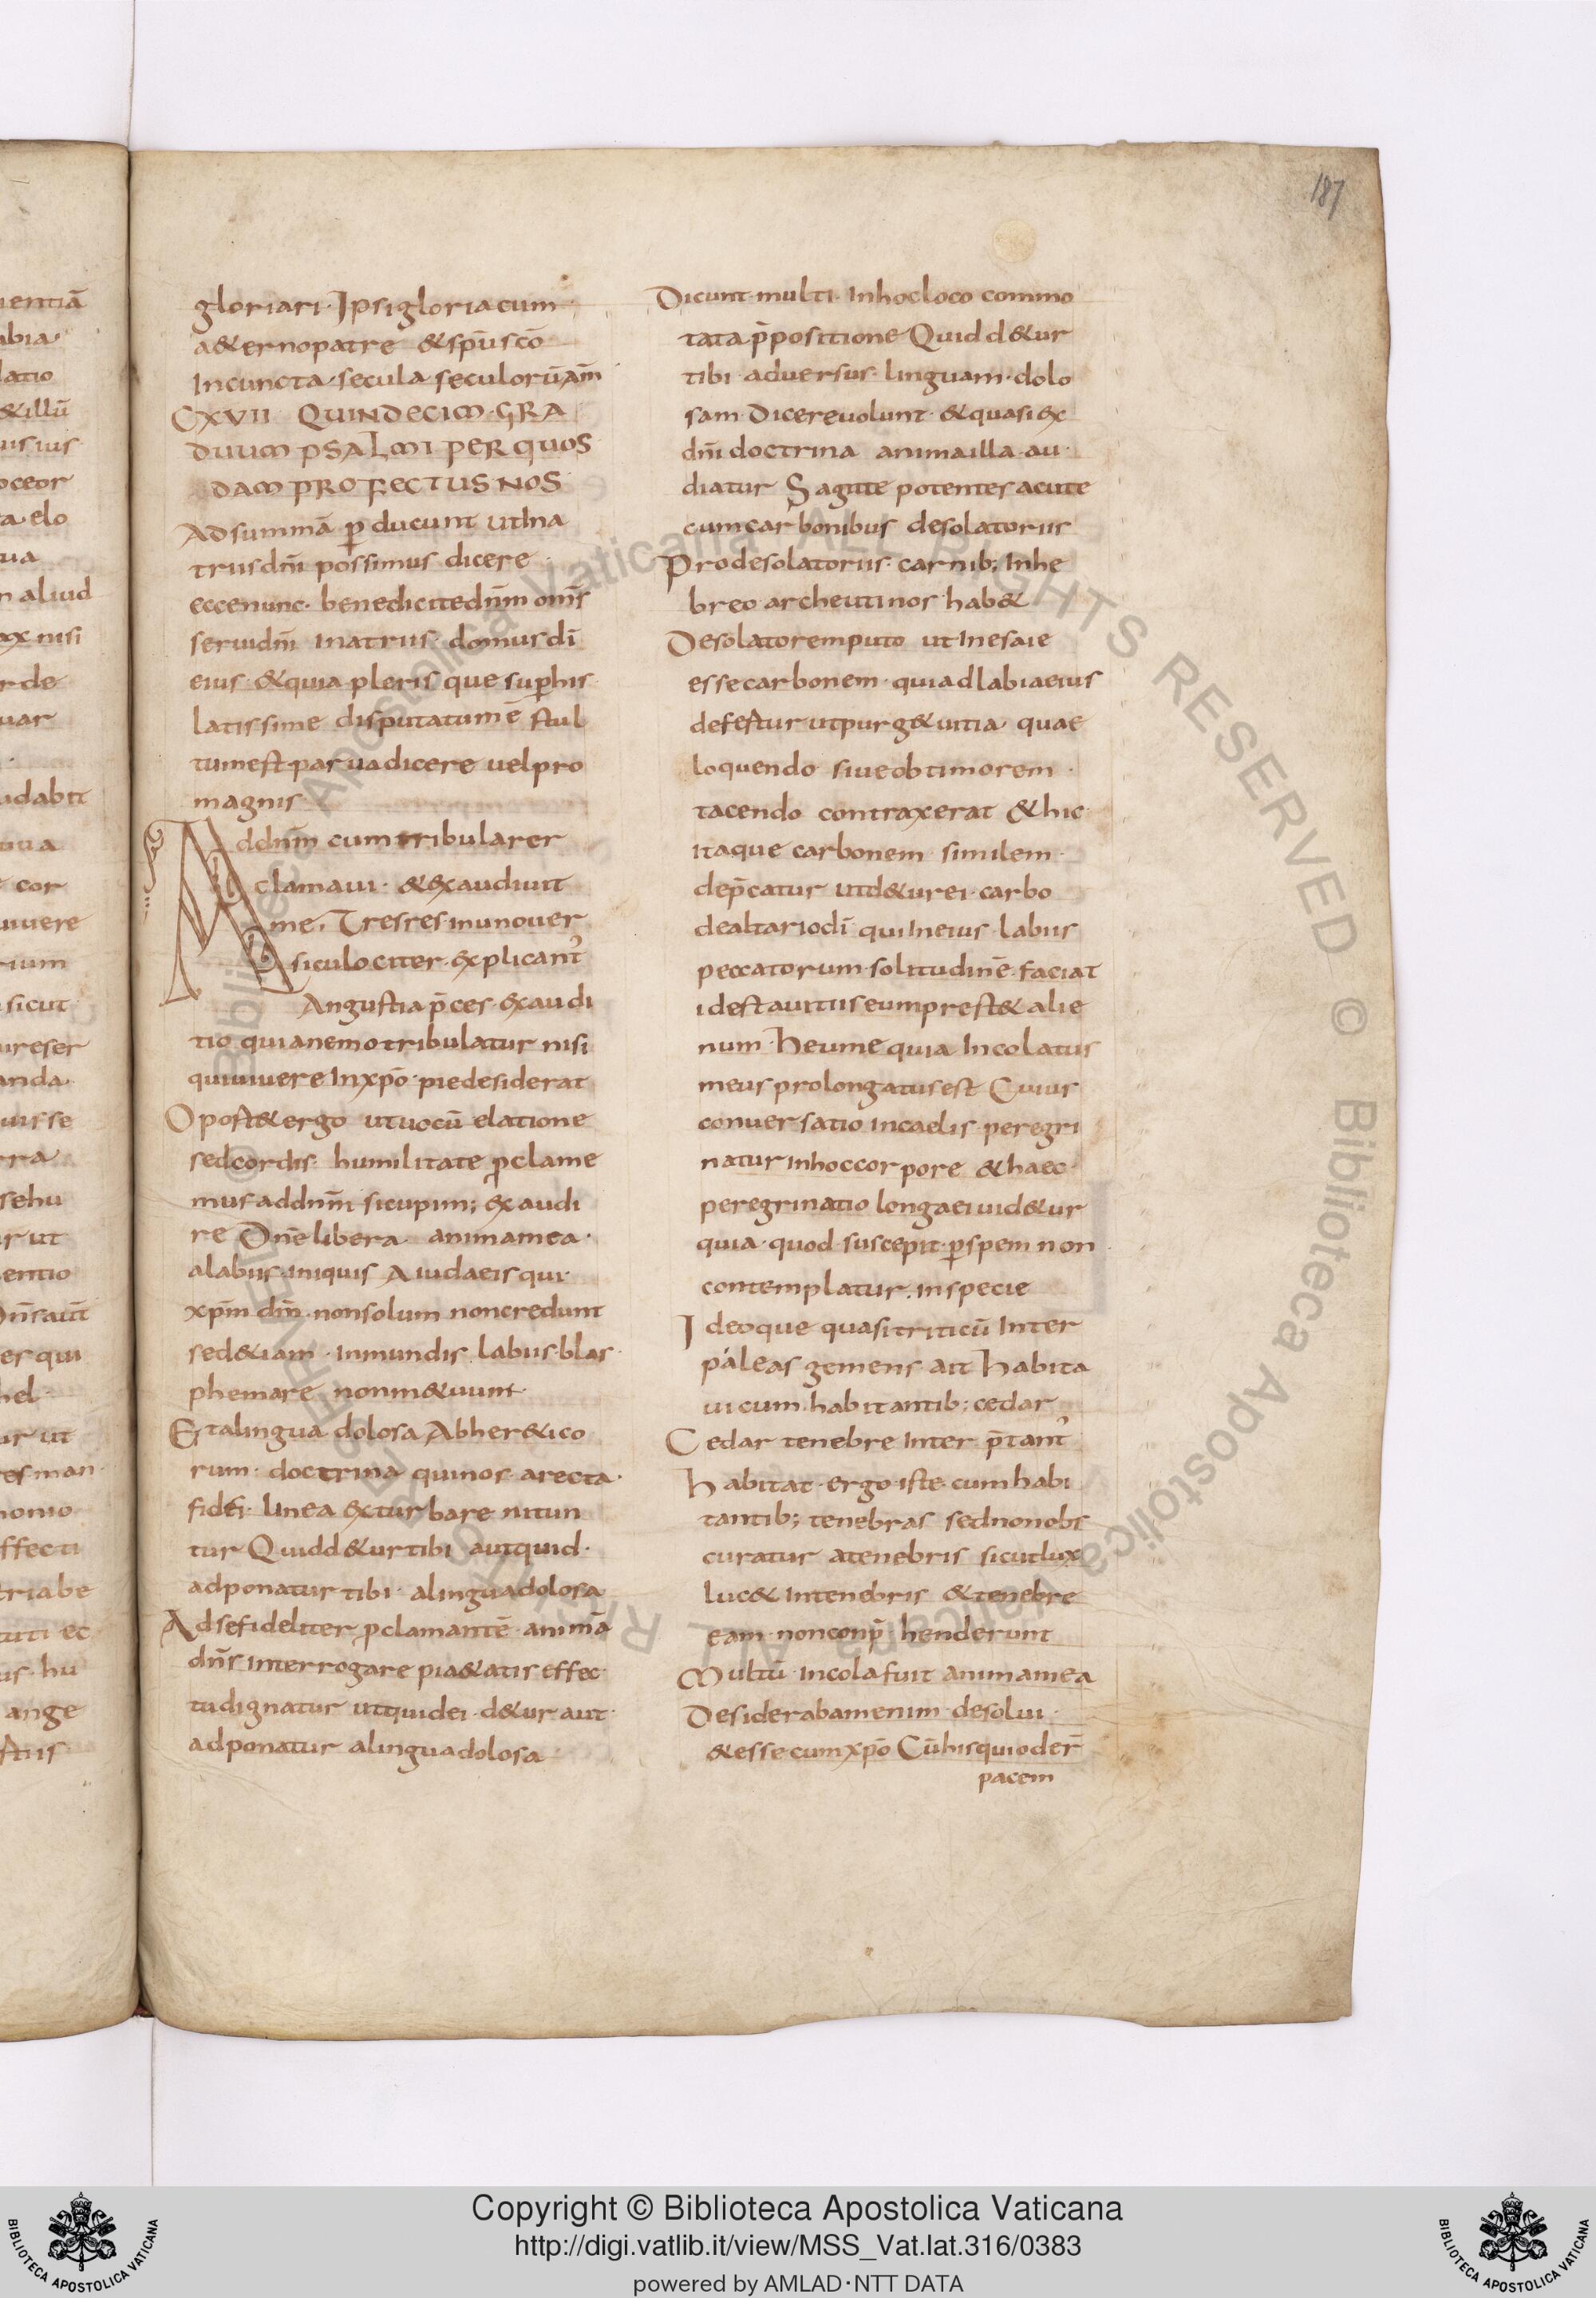 187
gloriari · Ipsi gloria cum
a&erno patre & sp̄u sc̄o
In cuncta secula seculorū am̄
CXVII QUINDECIM GRA
DUUM PSALMI PER QUOS
DAM PROFECTUS NOS
Ad summā ꝑducunt ut In a
triis dn̄i possimus dicere
ecce nunc · benedicite dn̄m om̄s
serui dn̄i in atriis · domus dī
eius · & quia plerisque sup his
latissime disputatum ē stul
tum est parua dicere uel pro
magnis
Ad dn̄m cum tribularer
clamaui · & exaudiuit
me · Tres res in uno uer
siculo citer explicant᷑
Angustia p̄ces · exaudi
tio quia nemo tribulatur nisi
qui uiuere In xp̄o · pie desiderat
Oport& ergo ut uocū elatione
sed cordis humilitate ꝓclame
mus ad dn̄m si cupim; exaudi
re Dn̄e libera animam ea ·
a labiis iniquis A iudaeis qui
xp̄m dn̄m non solum non credunt
sed &iam · inmundis labiis blas
phemare non m&uunt
Et a lingua dolosa Ab her&ico
rum doctrina qui nos a recta ·
fidei linea exturbare nitun
tur Quid d&ur tibi aut quid ·
adponatur tibi a lingua dolosa
Ad se fideliter ꝓclamantē animā
dn̄s interrogare pi&atis effec
tu dignatur ut quid ei d&ur aut
adponatur a lingua dolosa
Dicunt multi · In hoc loco commo
tata p̄positione Quid d&ur
tibi aduersus linguam dolo
sam Dicere uolunt & quasi ex
dn̄i doctrina anima illa au
diatur Sagitte potentes acute
cum carbonibus desolatoriis
Pro desolatoriis carnib; In he
breo archeutinos hab&
Desolatorem puto ut In esaie
esse carbonem qui ad labia eius
defertur ut purg& uitia quae
loquendo siue ob timorem ·
tacendo contraxerat & hic
itaque carbonem similem
dep̄catur ut d&ur ei carbo
de altario dī qui In eius labiis
peccatorum solitudinē faciat
id est a uitiis eum prest& alie
num Heu me quia Incolatus
meus prolongatus est Cuius
conuersatio in caelis peregri
natur in hoc corpore & haec
peregrinatio longa ei uid&ur
quia quod suscepit ꝑ spem non
contemplatur in specie
Ideoque quasi triticū Inter
paleas gemens ait Habita
ui cum habitantib; cedar
Cedar tenebre Inter p̄tant᷑
Habitat ergo iste cum habi
tantib; tenebras sed non obs
curatur a tenebris sicut lux
luc& In tenebris & tenebre
eam non conp̄henderunt
Multū incola fuit anima mea
Desiderabam enim desolui
& esse cum xp̄o Cū his qui oder̄
pacem
Copyright © Biblioteca Apostolica Vaticana
http://digi.vatlib.it/view/MSS_Vat.lat.316/0383
powered by AMLAD·NTT DATA
BIBLIOTECA APOSTOLICA VATICANA
BIBLIOTECA APOSTOLICA VATICANA